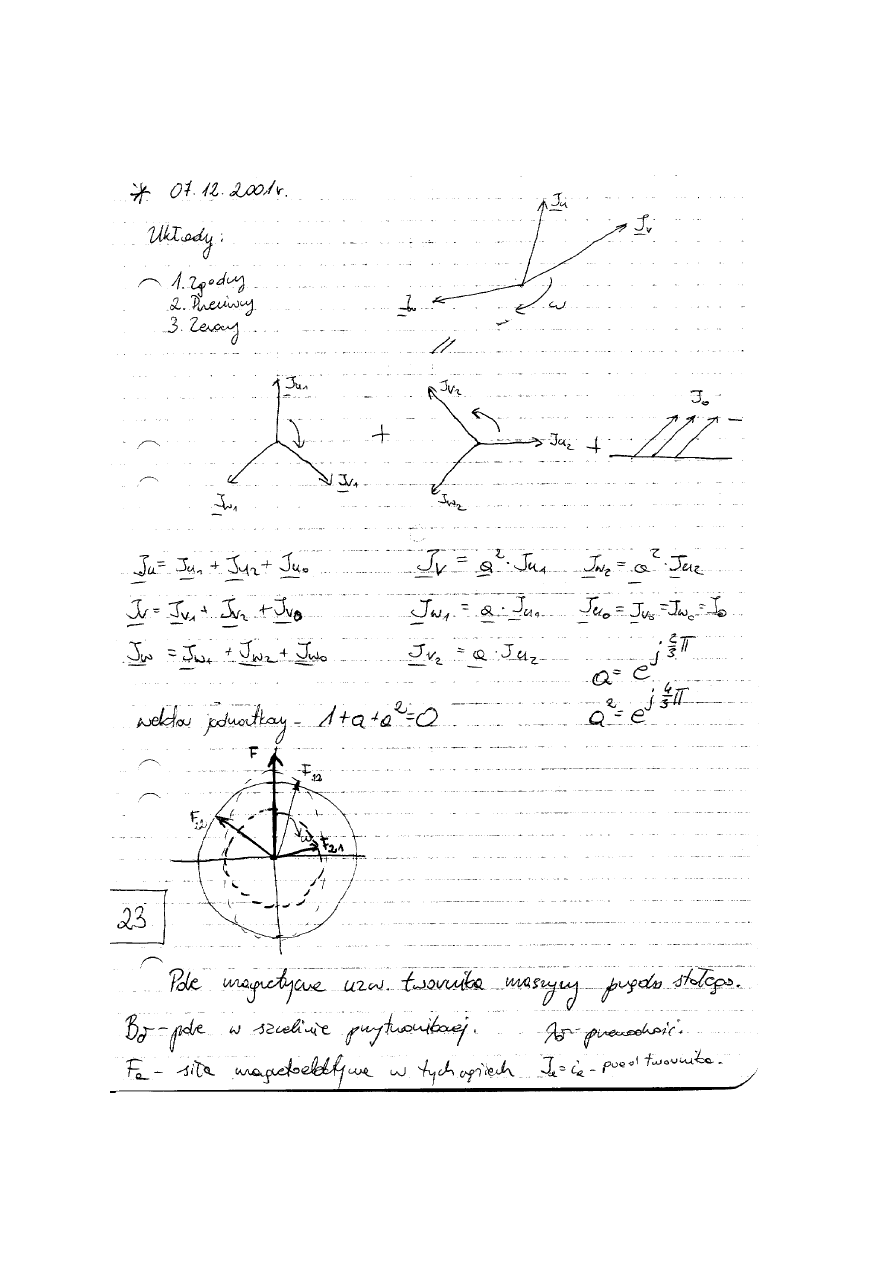 * 07.12.2001r.
Układy:
1. Zgodny
2. Przeciwny
3. Zerowy
J̲u
J̲v
J̲w
ω
//
J̲u1
J̲v1
J̲w1
+
Jv2
Ju2
Jw2
+
J0
J̲u = J̲u1 + J̲u2 + J̲u0
J̲v = a̲² · J̲u1
J̲w2 = a̲² · J̲u2
J̲v = J̲v1 + J̲v2 + J̲v0
J̲w1 = a̲ · J̲u1
J̲u0 = J̲v0 = J̲w0 = J̲0
J̲w = J̲w1 + J̲w2 + J̲w0
J̲v2 = a̲ · Ju2
a = e^(j 2/3 π)
wektor jednostkowy - 1+a+a²=0
a² = e^(j 4/3 π)
F
F12
F22
ω
F21
23
Pole magnetyczne uzw. twornika maszyny prądu stałego.
Bδ - pole w szczelinie przytwornikowej. λδ - przewodność.
Fa - siła w tych Ja = ia - prąd twornika.